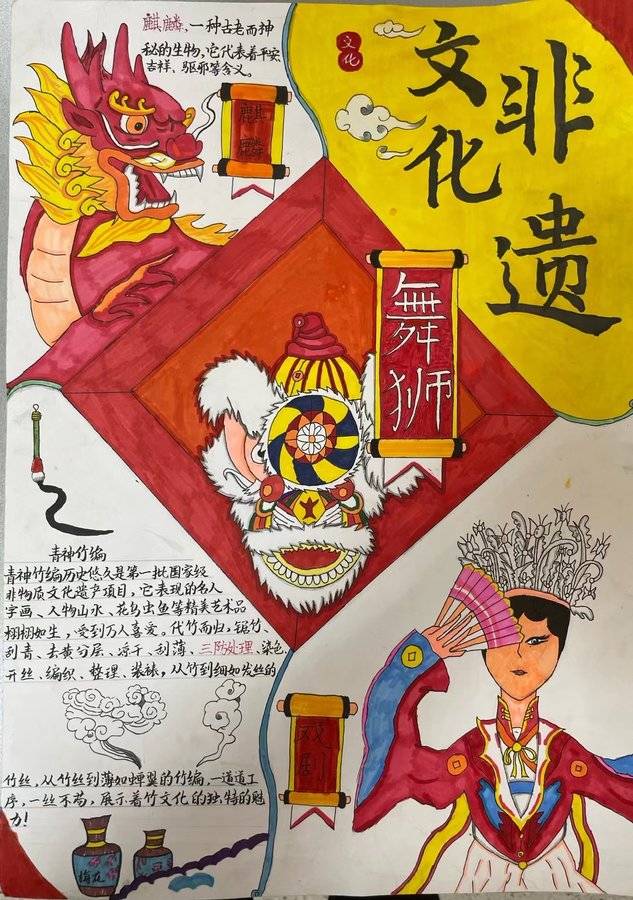 麒麟，一种古老而神
秘的生物，它代表着平安
吉祥、驱邪等含义。
麒麟
文化
非遗
文化
舞狮
青神竹编
青神竹编历史悠久是第一批国家级
非物质文化遗产项目，它表现的名人
字画、人物山水、花鸟虫鱼等精美艺术品
栩栩如生，受到万人喜爱。代竹而归、锯竹、
刮青、去黄分层、凉干、刮薄、三防处理、染色、
开丝、编织、整理、装裱，从竹到细如发丝的
竹丝，从竹丝到薄如蝉翼的竹编，一道道工
序，一丝不苟，展示着竹文化的独特的魅
力！
戏剧
梅花